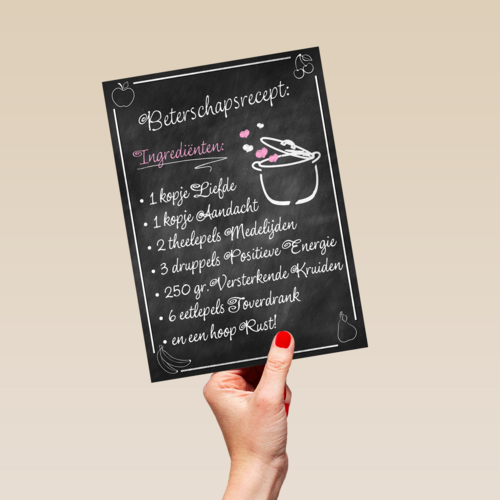 Beterschapsrecept:
Ingrediënten:
• 1 kopje Liefde
• 1 kopje Aandacht
• 2 theelepels Medelijden
• 3 druppels Positieve Energie
• 250 gr. Versterkende Kruiden
• 6 eetlepels Toverdrank
• en een hoop Rust!